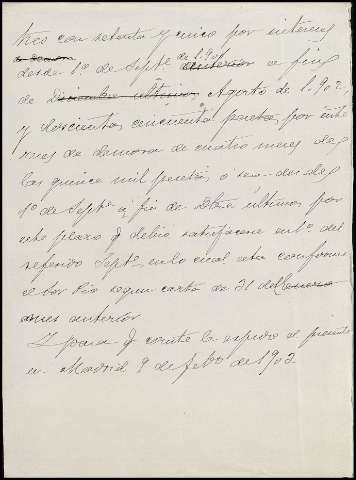 tres con setenta y cinco por intereses
de demora
desde 1º de Septe de 1.901 anterior a fin
de Diciembre último, Agosto de 1.902,
y doscientas cincuenta pesetas por inte
reses de demora de cuatro meses de
las quince mil pesetas, o sea desde
1º de Septe a fin de Dbre último por
este plazo q debió satisfacerse en 1º del
referido Septe, en lo cual está conforme
el Sor Pío segun carta de 31 del Enero
mes anterior
Y para q conste le expido el presente
en Madrid 9 de febro de 1902